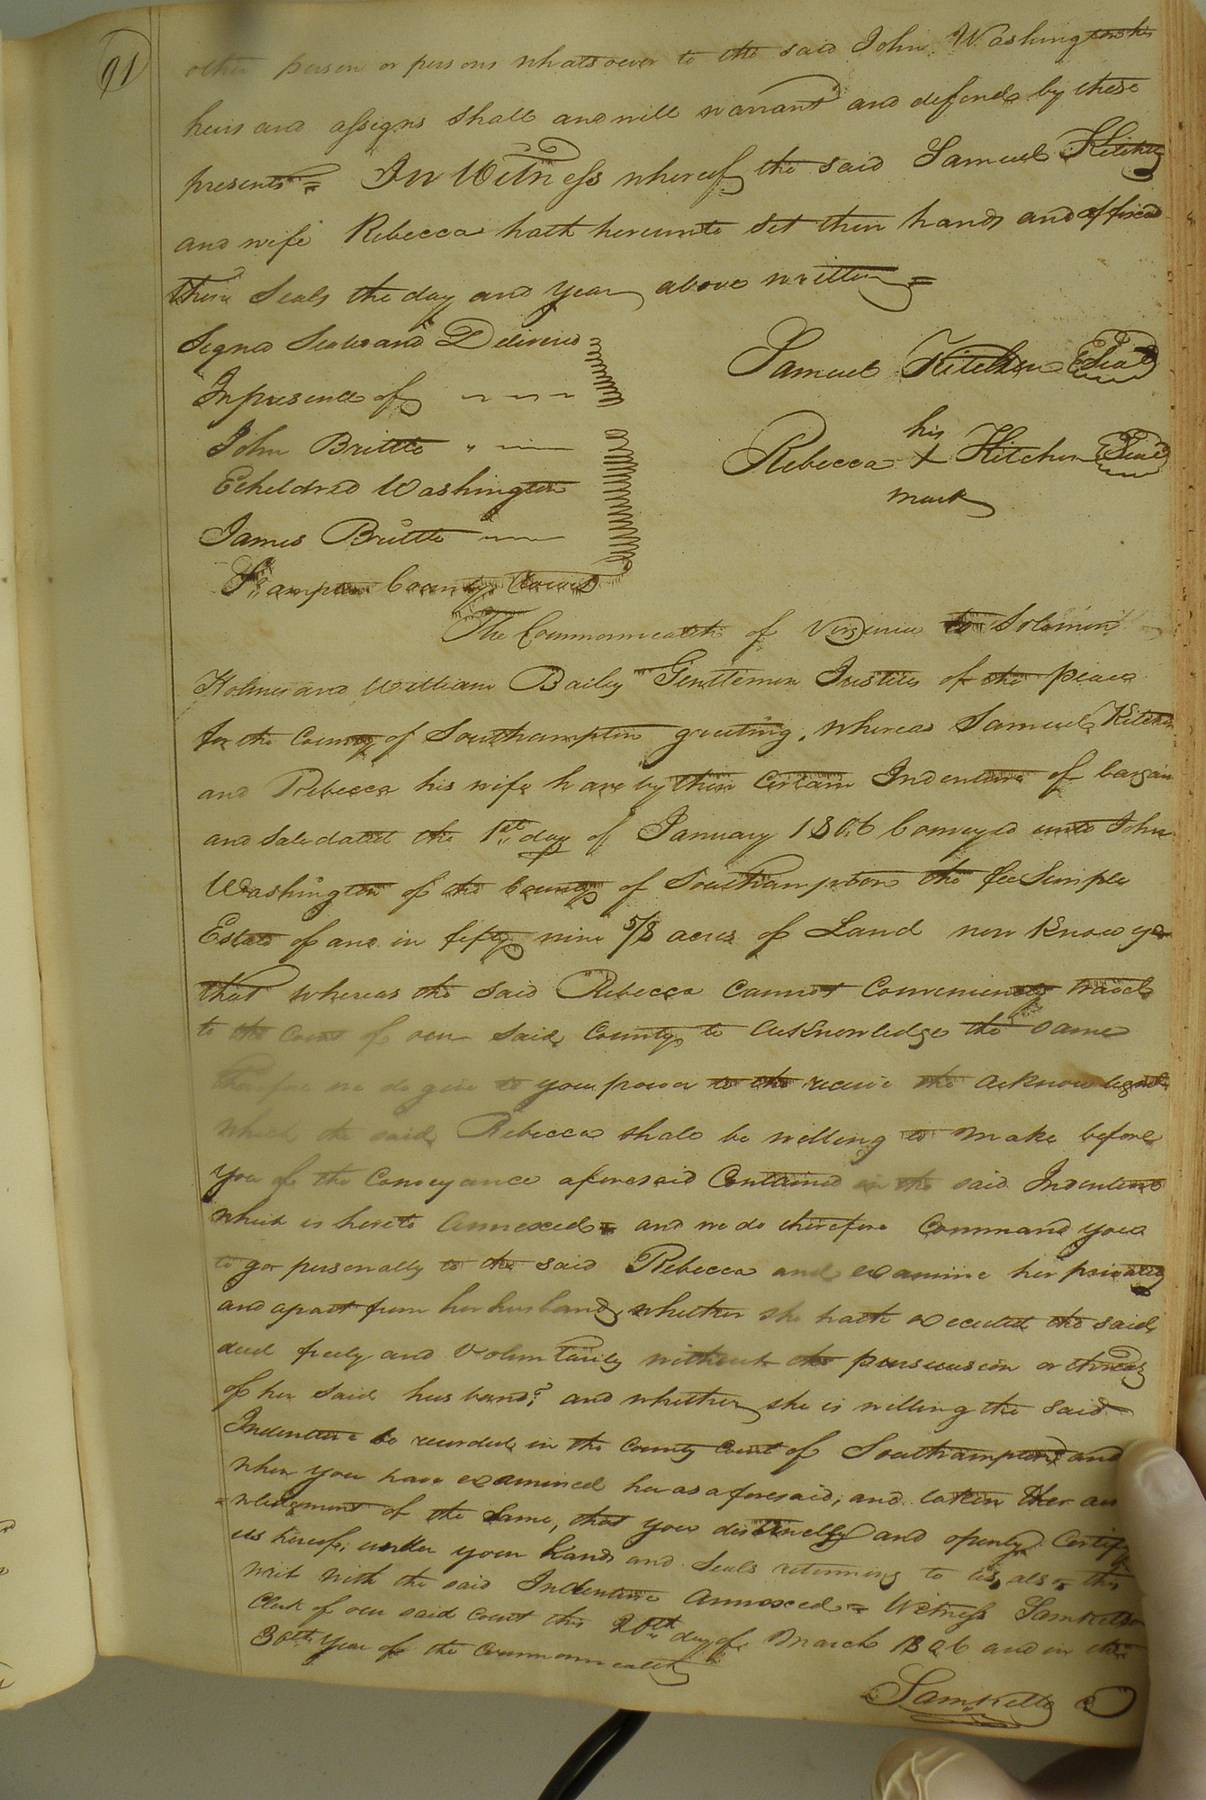 91
other person or persons whatsoever to the said John Washington his
heirs and assigns shall and will warrant and defend by these
presents = In Witness whereof the said Samuel Kitchen
and wife Rebecca hath hereunto set their hands and affixed
their Seals the day and year above written =
Signed Sealed and Delivered
In presence of
John Brittle
Etheldred Washington
James Brittle
Samuel Kitchen Seal
his
Rebecca + Kitchen Seal
mark
County Court
The Commonwealth of Virginia to Solomon
Holmes and William Bailey Gentlemen Justices of the peace
for the County of Southampton greeting, whereas Samuel Kitchen
and Rebecca his wife have by their Certain Indenture of bargain
and Sale dated the 1st day of January 1806 Conveyed unto John
Washington of the County of Southampton the fee Simple
Estate of and in fifty nine 5/8 acres of Land now Know ye
that whereas the said Rebecca Cannot Conveniently travel
to the Court of our said County to acknowledge the same
therefore we do give to you power to the receive the acknowledgmt
which the said Rebecca shall be willing to make before
you of the Conveyance aforesaid Contained in the said Indenture
which is hereto annexed = and we do therefore Command you
to go personally to the said Rebecca and examine her privately
and apart from her husband, whether she hath executed the said
deed freely and Voluntarily without the persuasion or threats
of her said husband? and whether she is willing the said
Indenture be recorded in the County Court of Southampton? and
when you have examined her as aforesaid, and taken her ac
=nowledgment of the Same, that you distinctly and openly Certify
us hereof, under your hands and Seals returning to us, also this
writ with the said Indenture annexed = Witness Saml Kello
Clerk of our said Court this 20th day of March 1806 and in the
30th Year of the Commonwealth
Saml Kello